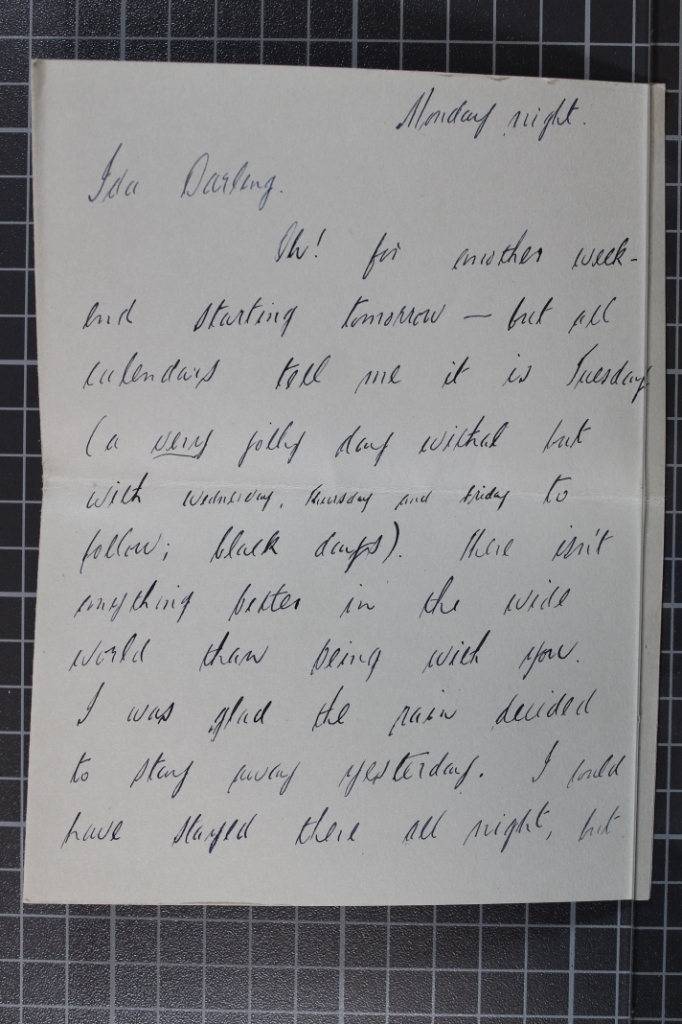 Monday night.
Ida Darling.
Oh! for another week-
end starting tomorrow — but all
calendars tell me it is Tuesday
(a very jolly day withal but
with Wednesday, Thursday and Friday to
follow; black days). There isn't
anything better in the wide
world than being with you.
I was glad the rain decided
to stay away yesterday. I could
have stayed there all night, but